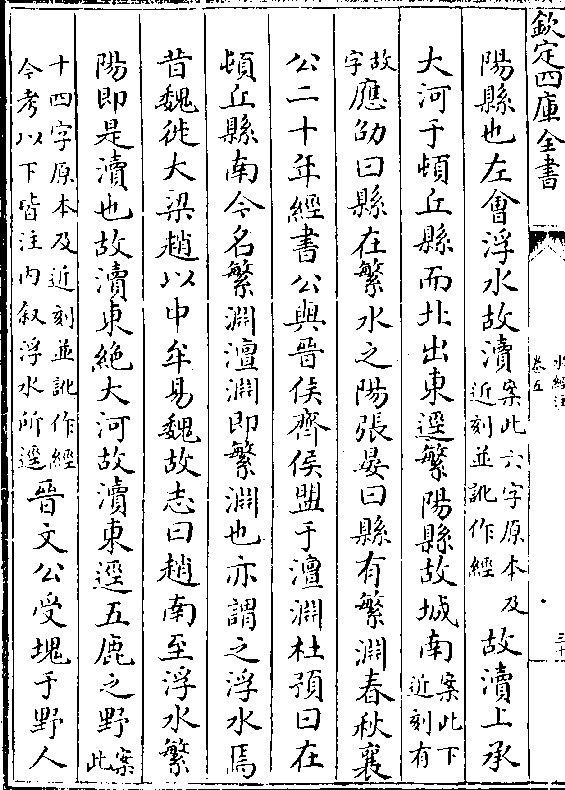 欽定四庫全書
水經注
卷五
三十
陽縣也左會浮水故瀆案此六字原本及近刻並訛作經故瀆上承
大河于頓丘縣而北出東逕繁陽縣故城南案此下近刻有
故字應劭曰縣在繁水之陽張晏曰縣有繁淵春秋襄
公二十年經書公與晉侯齊侯盟于澶淵杜預曰在
頓丘縣南今名繁淵澶淵即繁淵也亦謂之浮水焉
昔魏徙大梁趙以中牟易魏故志曰趙南至浮水繁
陽即是瀆也故瀆東絶大河故瀆東逕五鹿之野案此
十四字原本及近刻並訛作經今考以下皆注内叙浮水所逕晉文公受塊于野人